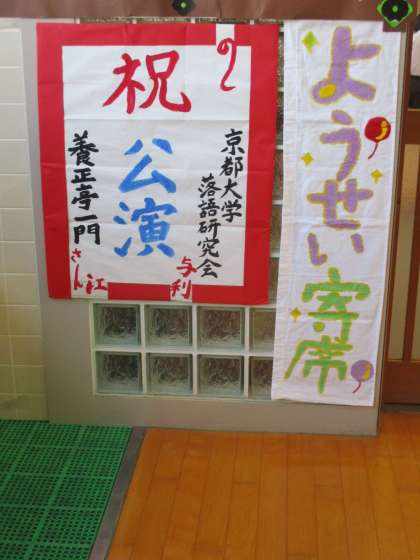 祝
公演
京都大学
落語研究会
与利
養正亭一門
さん江
ようせい寄席